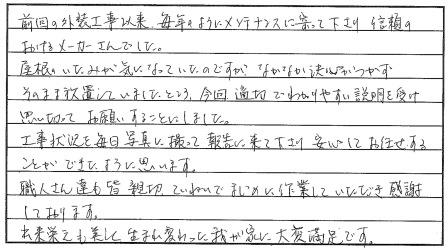 前回の外装工事以来、毎年のようにメンテナンスに寄って下さり信頼の
おけるメーカーさんでした。
屋根のいたみが気になっていたのですがなかなか決心がつかず
そのまま放置していましたところ、今回適切でわかりやすい説明を受け
思い切ってお願いすることにしました。
工事状況を毎日写真に撮って報告に来て下さり安心してお任せする
ことができたように思います。
職人さん達も皆親切、ていねいでまじめに作業していただき感謝
しております。
出来栄えも美しく生まれ変わった我が家に大変満足です。